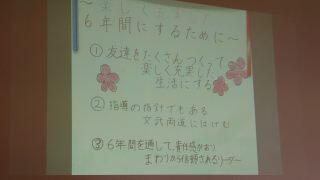 ～楽しく充実した
6年間にするために～
①友達をたくさんつくって
楽しく充実した
生活にする
②指導の指針でもある
文武両道にはげむ
③6年間を通して、責任感があり
まわりから信頼されるリーダー